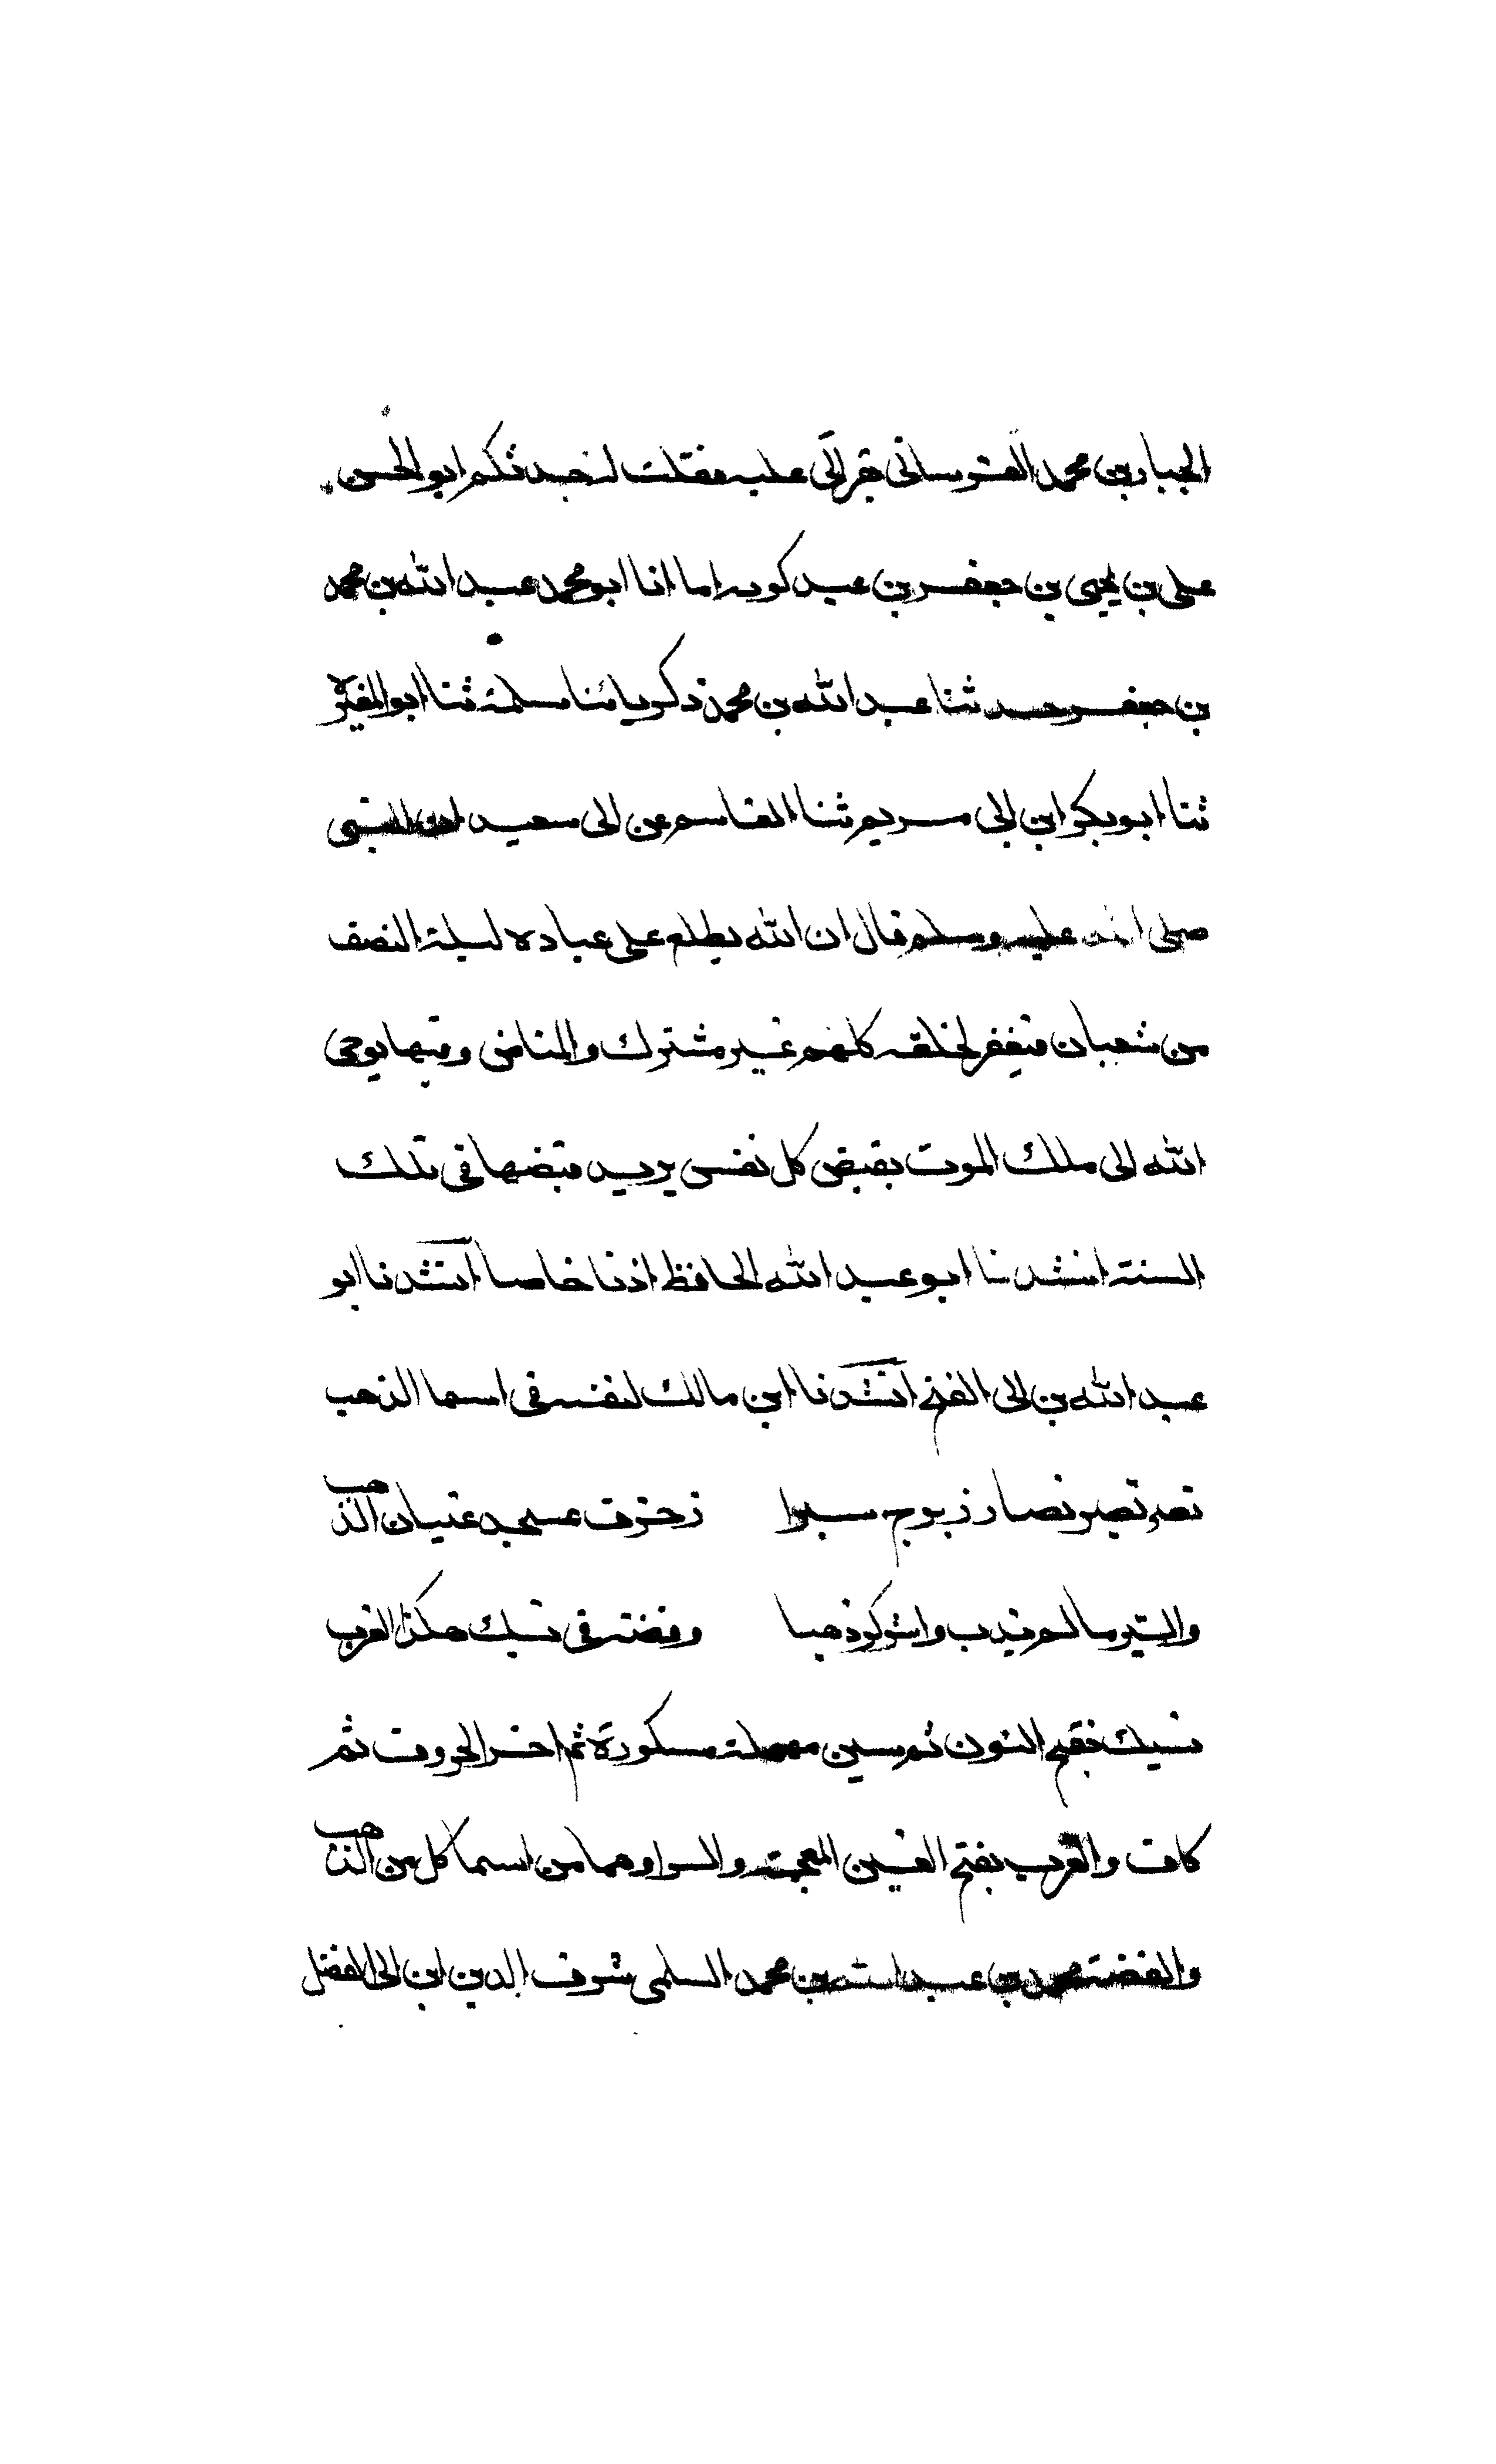 الجبار بن محمد الفرساني بقراتي عليه فقلت له حدثكم ابو الحسن
على بن يحيى بن جعفر بن عبد كويه اما انا ابو محمد عبد الله بن محمد
بن جعفر حدثنا عبد الله بن محمد زكريا ثنا سلمة ثنا ابو المغيرة
ثنا ابو بكر ابن ابى مريم ثنا القاسم عن ابى سعيد ان النبى
صلى الله عليه وسلم قال ان الله يطلع على عباده ليلة النصف
من شعبان فيغفر لخلقه كلهم غير مشترك والمنافى وفيها يوحى
الله الى ملك الموت بقبض كل نفس يريد قبضها فى تلك
السنة انشدنا ابو عبد الله الحافظ اذنا خاصا انشدنا ابو
عبد الله بن ابى الفتح انشدنا ابن مالك لنفسه فى اسما الذهب
نضر نضير نضار زبرج سيرا زخرف عسجد عقيان الذهب
والتبر مالم يذب واشركوا ذهبا وفضة فى نسيك هكذا الغرب
نسيك بفتح النون ثم سين مهملة مسكورة ثم اخر الحروف ثم
كاف والغرب بفتح الغين المعجمة والراوهما من اسما كل من الذهب
والفضة محمد بن عبد الله بن محمد السلمى شرف الدين ابن ابى الفضل